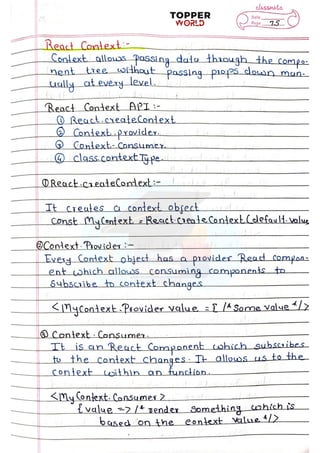 classmate
TOPPER
WORLD
Date
Page 75
React Context:-
Context allows passing data through the compo-
nent tree without passing props down man-
ually at every level.
React Context API :-
① React.createContext
② Context.provider.
③ Context.Consumer.
④ class.contextType.
① React.createContext:-
It creates a context object
const MyContext = React.createContext(default.value
② Context.Provider :-
Every Context object has a provider React compon-
ent which allows consuming components to
Subscribe to context changes
<Mycontext.Provider value = { /* Some value */>
③ Context.Consumer.
It is an React Component which subscribes
to the context changes. It allows us to the
context within an function.
<My Context.Consumer>
{value => /* render something which is
based on the context value */>